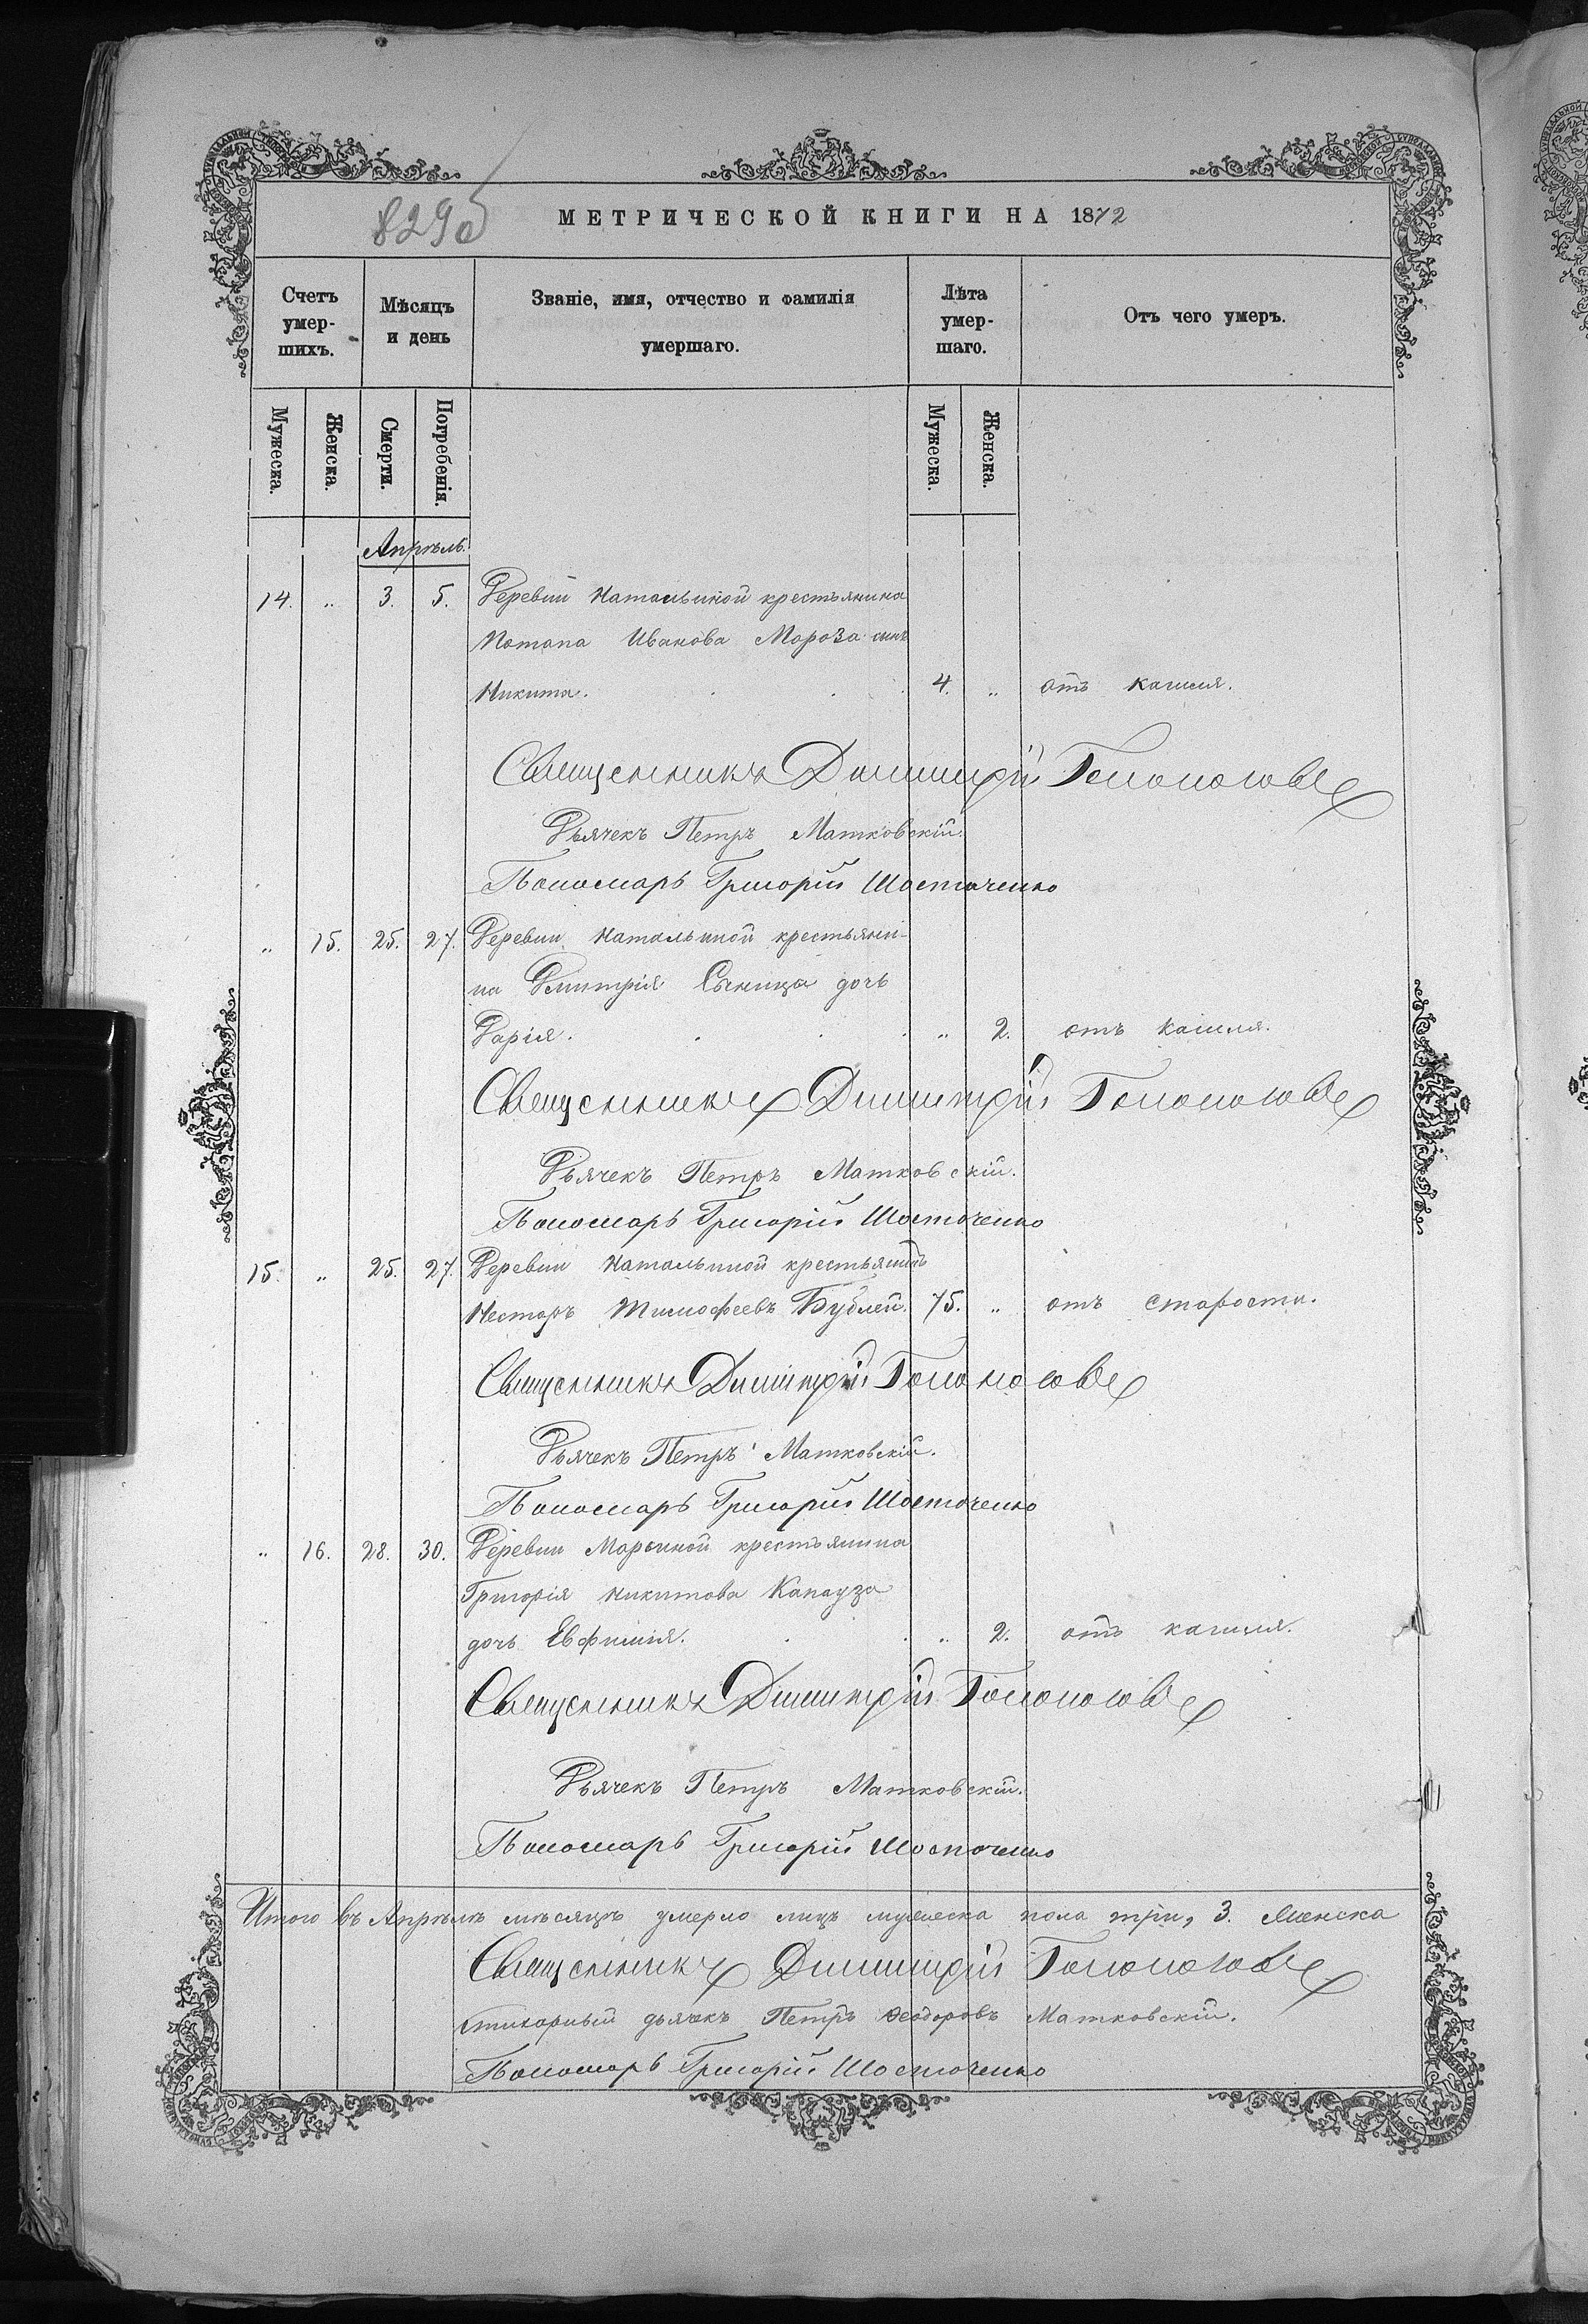 829об
МЕТРИЧЕСКОЙ КНИГИ НА 1872
Счетъ умер-шихъ.
Мѣсяцъ и день
Званіе, имя, отчество и фамилія умершаго.
Лѣта умер-шаго.
Отъ чего умеръ.
Мужеска. Женска. Смерти. Погребенія. Мужеска. Женска.
Апрѣль.
14. " 3. 5. Деревни Натальиной крестьянина
Потапа Иванова Мороза сынъ
Никита. 4. " отъ кашля.
Священникъ Димитрій
Дьячекъ Петръ Матковскій.
Пономарь Григорій Шосточенко
" 15. 25. 27. Деревни Натальиной крестьяни-
на Дмитрія Сыница дочь
Дарія. " 2. отъ кашля.
Священникъ Димитрій
Дьячекъ Петръ Матковскій.
Пономарь Григорій Шосточенко
15. " 25. 27. Деревни Натальиной крестьянинъ
Несторъ Тимофеевъ Бублей. 75. " отъ старости.
Священникъ Димитрій
Дьячекъ Петръ Матковскій.
Пономарь Григорій Шосточенко
" 16. 28. 30. Деревни Марьиной крестьянина
Григорія Никитова Капауза
дочь Евфимія. " 2. отъ кашля.
Священникъ Димитрій
Дьячекъ Петръ Матковскій.
Пономарь Григорій Шосточенко
Итого въ Апрѣлѣ мѣсяцѣ умерло лицъ мужеска пола три, 3. Женска
Священникъ Димитрій
стихарный дьячекъ Петръ Ѳеодоровъ Матковскій.
Пономарь Григорій Шосточенко